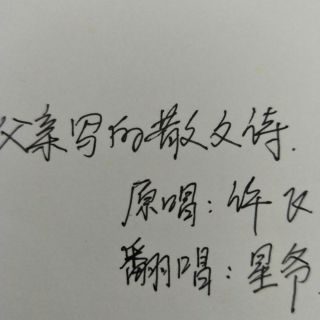 父亲写的散文诗.
原唱：许飞
翻唱：星爷